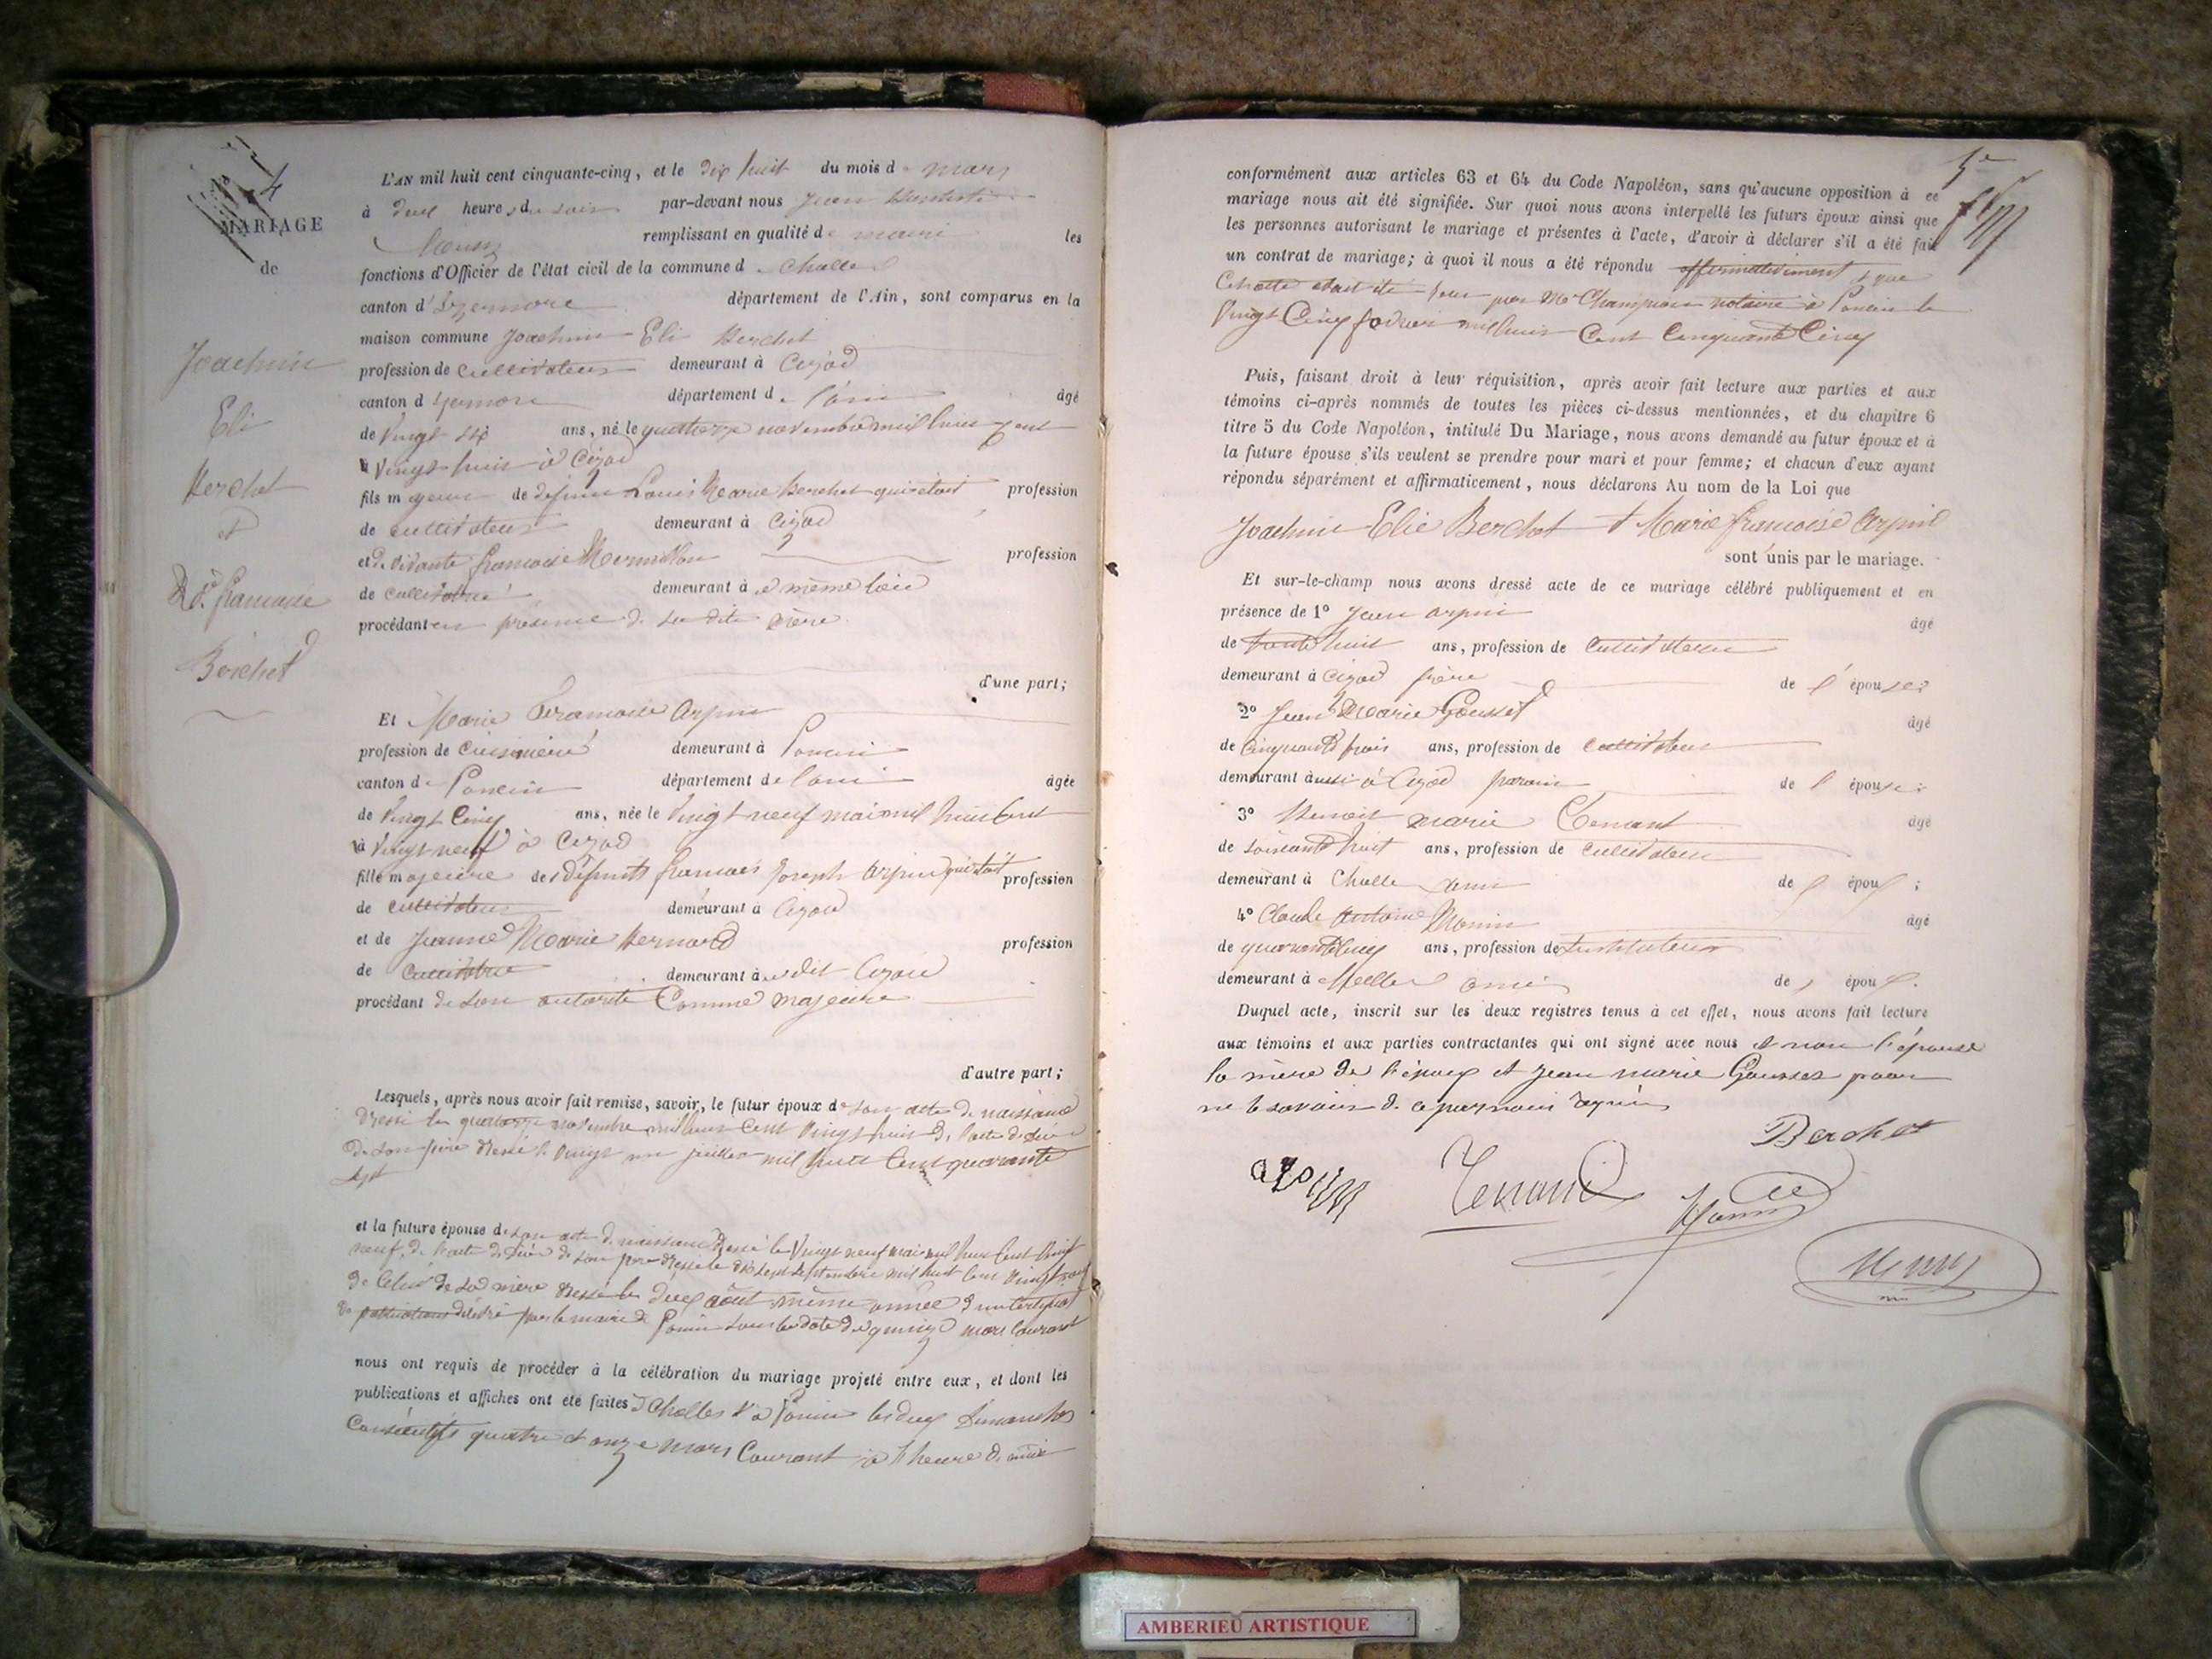 4
MARIAGE
de
Joachim
Eli
Berchet
et
Françoise
Berchet
L'AN mil huit cent cinquante-cinq, et le dix huit du mois de mars
à deux heures du soir par-devant nous Jean Baptiste
remplissant en qualité de maire les
fonctions d'Officier de l'état civil de la commune d
canton d'Izernore département de l'Ain, sont comparus en la
maison commune Joachim Eli Berchet
profession de cultivateur demeurant à Cizod
canton d'Izernore département de l'ain âgé
de Vingt six ans, né le quatorze novembre mil huit cent
Vingt huit à Cizod
fils majeur de défunt Louis Marie Berchet qui était profession
de cultivateur demeurant à Cizod
et de vivante françoise profession
de demeurant à même lieu
procédant en présence de sa dite mère
d'une part;
Et Marie Françoise Arpin
profession de cuisinière demeurant à Poncin
canton de Poncin département de l'ain âgée
de Vingt Cinq ans, née le Vingt neuf mai mil huit Cent
Vingt neuf à Cizod
fille majeure des défunts françois Joseph Arpin qui était profession
de cultivateur demeurant à Cizod
et de Jeanne Marie Bernard profession
de demeurant à dit Cizod
procédant de son autorité Comme majeure
d'autre part;
Lesquels, après nous avoir fait remise, savoir, le futur époux de son acte de naissance
dressé le quatorze novembre mil huit Cent Vingt huit de l'acte de décès
de son père dressé le Vingt un juillet mil huit Cent quarante
sept
et la future épouse de son acte de naissance dressé le Vingt neuf mai mil huit Cent Vingt
neuf, de l'acte de décès de son père dressé le dix sept septembre mil huit Cent
de Celui de sa mère dressé le deux août même année d'un Certificat
de publications délivré par le maire de Poncin sous la date du quinze mars Courant
nous ont requis de procéder à la célébration du mariage projeté entre eux, et dont les
publications et affiches ont été faites à Challes et à Poncin les deux Dimanches
Consécutifs quatre et onze mars Courant à l'heure de midi
5
conformément aux articles 63 et 64 du Code Napoléon, sans qu'aucune opposition à ce
mariage nous ait été signifiée. Sur quoi nous avons interpellé les futurs époux ainsi que
les personnes autorisant le mariage et présentes à l'acte, d'avoir à déclarer s'il a été fait
un contrat de mariage; à quoi il nous a été répondu affirmativement et que
par Me notaire à Poncin le
Vingt Cinq février mil huit Cent Cinquante Cinq
Puis, faisant droit à leur réquisition, après avoir fait lecture aux parties et aux
témoins ci-après nommés de toutes les pièces ci-dessus mentionnées, et du chapitre 6
titre 5 du Code Napoléon, intitulé Du Mariage, nous avons demandé au futur époux et à
la future épouse s'ils veulent se prendre pour mari et pour femme; et chacun d'eux ayant
répondu séparément et affirmativement, nous déclarons Au nom de la Loi que
Joachim Elie Berchet et Marie françoise Arpin
sont unis par le mariage.
Et sur-le-champ nous avons dressé acte de ce mariage célébré publiquement et en
présence de 1° Jean Arpin âgé
de trente huit ans, profession de Cultivateur
demeurant à Cizod frère de l'épouse;
2° Jean Marie Gousset âgé
de Cinquante trois ans, profession de Cultivateur
demeurant aussi à Cizod parain de l'épouse;
3° Benoit marie Tenant âgé
de soixante huit ans, profession de Cultivateur
demeurant à Challe ami de l'époux;
4° Claude Antoine âgé
de quarante Cinq ans, profession de Instituteur
demeurant à ami de l'époux.
Duquel acte, inscrit sur les deux registres tenus à cet effet, nous avons fait lecture
aux témoins et aux parties contractantes qui ont signé avec nous et non l'épouse
la mère de l'époux et Jean marie Gousset pour
ne le savoir de ce par nous requis
Berchet
arpin Tenand
AMBERIEU ARTISTIQUE